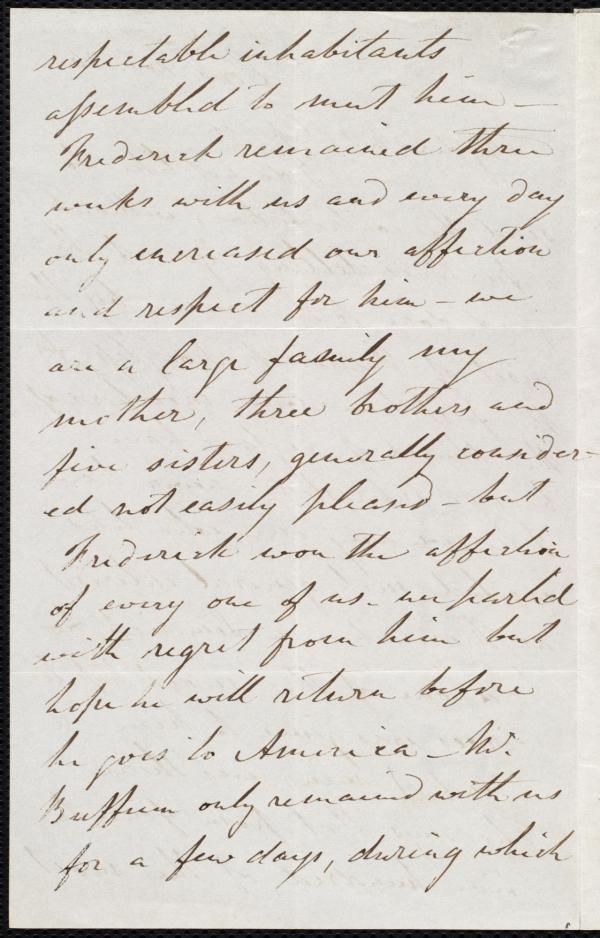 respectable inhabitants
assembled to meet him —
Frederick remained three
weeks with us and every day
only increased our affection
and respect for him – we
are a large family my
mother, three brothers and
five sisters, generally consider-
ed not easily pleased – but
Frederick won the affection
of every one of us – we parted
with regret from him but
hope he will return before
he goes to America – Mr.
Buffum only remained with us
for a few days, during which